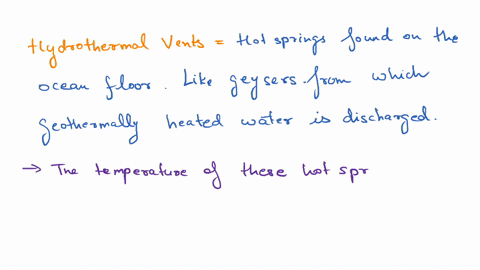 Hydrothermal Vents = Hot springs found on the
ocean floor. Like geysers from which
geothermally heated water is discharged.
→ The temperature of these hot spr